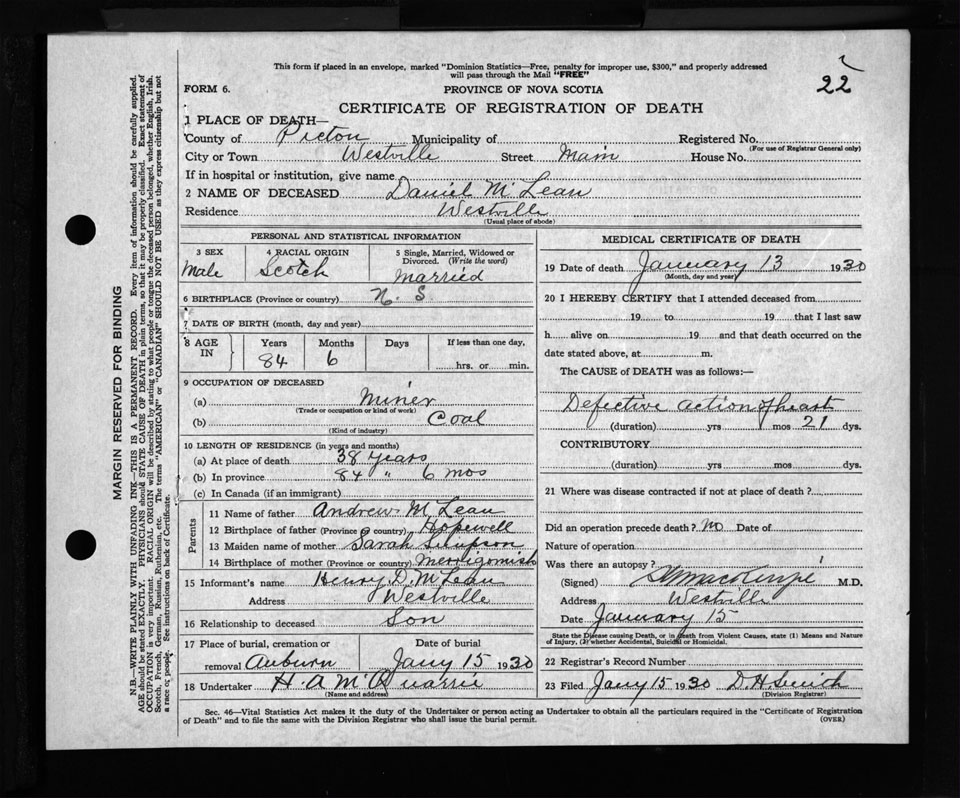 This form if placed in an envelope, marked "Dominion Statistics—Free, penalty for improper use, $300," and properly addressed
will pass through the Mail "FREE"
22
FORM 6.
PROVINCE OF NOVA SCOTIA
CERTIFICATE OF REGISTRATION OF DEATH
1 PLACE OF DEATH—
County of Pictou Municipality of Registered No.
(For use of Registrar General only)
City or Town Westville Street Main House No.
If in hospital or institution, give name
2 NAME OF DECEASED Daniel McLean
Residence Westville
(Usual place of abode)
PERSONAL AND STATISTICAL INFORMATION
3 SEX
Male
4 RACIAL ORIGIN
Scotch
5 Single, Married, Widowed or
Divorced. (Write the word)
Married
6 BIRTHPLACE (Province or country) N. S.
7 DATE OF BIRTH (month, day and year)
8 AGE IN
Years Months Days If less than one day,
84 6 hrs. or min.
9 OCCUPATION OF DECEASED
(a) Miner
(Trade or occupation or kind of work)
(b) Coal
(Kind of industry)
10 LENGTH OF RESIDENCE (in years and months)
(a) At place of death 38 years
(b) In province 84 " 6 mos
(c) In Canada (if an immigrant)
Parents
11 Name of father Andrew McLean
12 Birthplace of father (Province or country) Hopewell
13 Maiden name of mother Sarah Simpson
14 Birthplace of mother (Province or country) Merrigomish
15 Informant's name Henry D. McLean
Address Westville
16 Relationship to deceased Son
17 Place of burial, cremation or
removal Auburn
Date of burial
Jany 15 1930
18 Undertaker H. A. McQuarrie
(Name and address)
MEDICAL CERTIFICATE OF DEATH
19 Date of death January 13 1930
(Month, day and year)
20 I HEREBY CERTIFY that I attended deceased from
19 to 19 that I last saw
h alive on 19 and that death occurred on the
date stated above, at m.
The CAUSE of DEATH was as follows:—
Defective action of heart
(duration) yrs mos 21 dys.
CONTRIBUTORY
(duration) yrs mos dys.
21 Where was disease contracted if not at place of death?
Did an operation precede death? No Date of
Nature of operation
Was there an autopsy?
(Signed) MacKenzie M.D.
Address Westville
Date January 15
State the Disease causing Death, or in death from Violent Causes, state (1) Means and Nature
of Injury, (2) whether Accidental, Suicidal or Homicidal.
22 Registrar's Record Number
23 Filed Jany 15 1930 D. H. Smith
(Division Registrar)
Sec. 46—Vital Statistics Act makes it the duty of the Undertaker or person acting as Undertaker to obtain all the particulars required in the "Certificate of Registration
of Death" and to file the same with the Division Registrar who shall issue the burial permit.
(OVER)
MARGIN RESERVED FOR BINDING
N.B.—WRITE PLAINLY WITH UNFADING INK—THIS IS A PERMANENT RECORD. Every item of information should be carefully supplied.
AGE should be stated EXACTLY. PHYSICIANS should STATE CAUSE OF DEATH in plain terms, so that it may be properly classified. Exact statement of
OCCUPATION is very important. RACIAL ORIGIN will be described by stating to what people or tongue the deceased person belonged, whether English, Irish,
Scotch, French, German, Russian, Ruthenian, etc. The terms "AMERICAN" or "CANADIAN" SHOULD NOT BE USED as they express citizenship but not
a race or people. See instructions on back of Certificate.